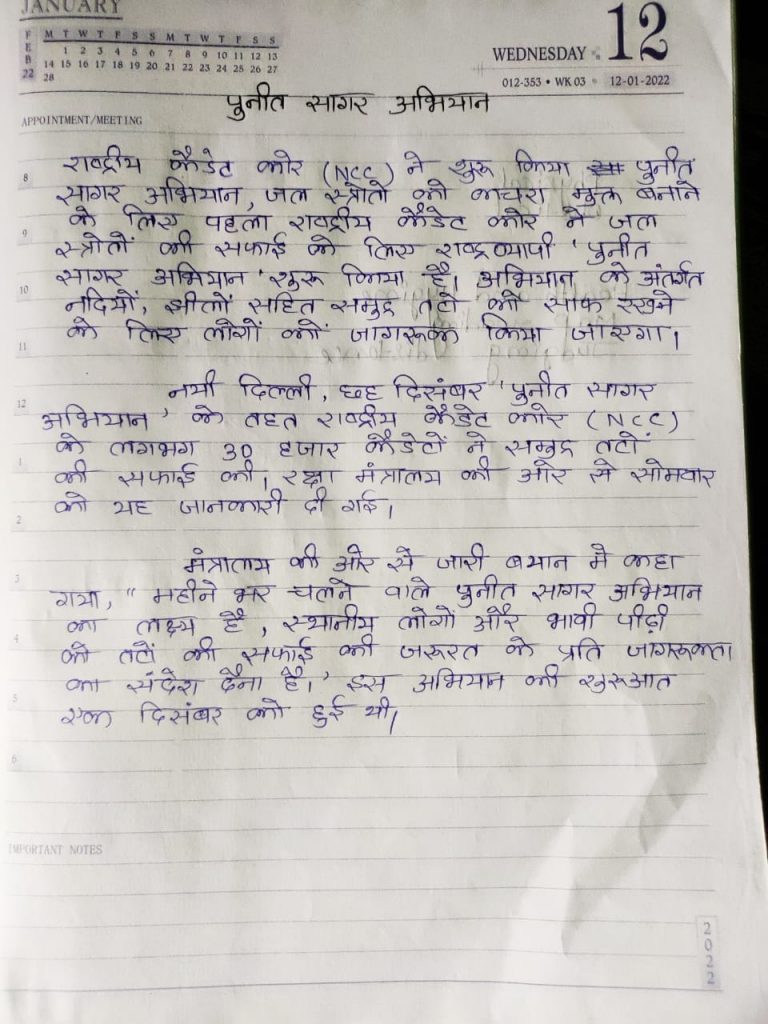 JANUARY
FEB 22
M T W T F S S M T W T F S S
1 2 3 4 5 6 7 8 9 10 11 12 13
14 15 16 17 18 19 20 21 22 23 24 25 26 27
28
WEDNESDAY 12
012-353 • WK 03 • 12-01-2022
पुनीत सागर अभियान
APPOINTMENT/MEETING
8 राष्ट्रीय कैडेट कोर (NCC) ने शुरू किया पुनीत
सागर अभियान, जल स्त्रोतो को कचरा मुक्त बनाने
के लिए पहला राष्ट्रीय कैडेट कोर ने जल
9 स्त्रोतों की सफाई के लिए राष्ट्रव्यापी 'पुनीत
सागर अभियान' शुरू किया है। अभियान के अंतर्गत
10 नदियों, झीलों सहित समुद्र तटो को साफ रखने
के लिए लोगों कों जागरूक किया जाएगा।
11
नयी दिल्ली, छह दिसंबर 'पुनीत सागर
12 अभियान' के तहत राष्ट्रीय कैडेट कोर (NCC)
के लगभग 30 हजार कैडेटों ने समुद्र तटों
1 की सफाई की। रक्षा मंत्रालय की ओर से सोमवार
को यह जानकारी दी गई।
2
मंत्रालय की ओर से जारी बयान मे कहा
3 गया, " महीने भर चलने वाले पुनीत सागर अभियान
का लक्ष्य है, स्थानीय लोगों और भावी पीढ़ी
4 को तटों की सफाई की जरूरत के प्रति जागरूकता
का संदेश देना है।' इस अभियान की शुरूआत
5 एक दिसंबर को हुई थी।
6
IMPORTANT NOTES
2022